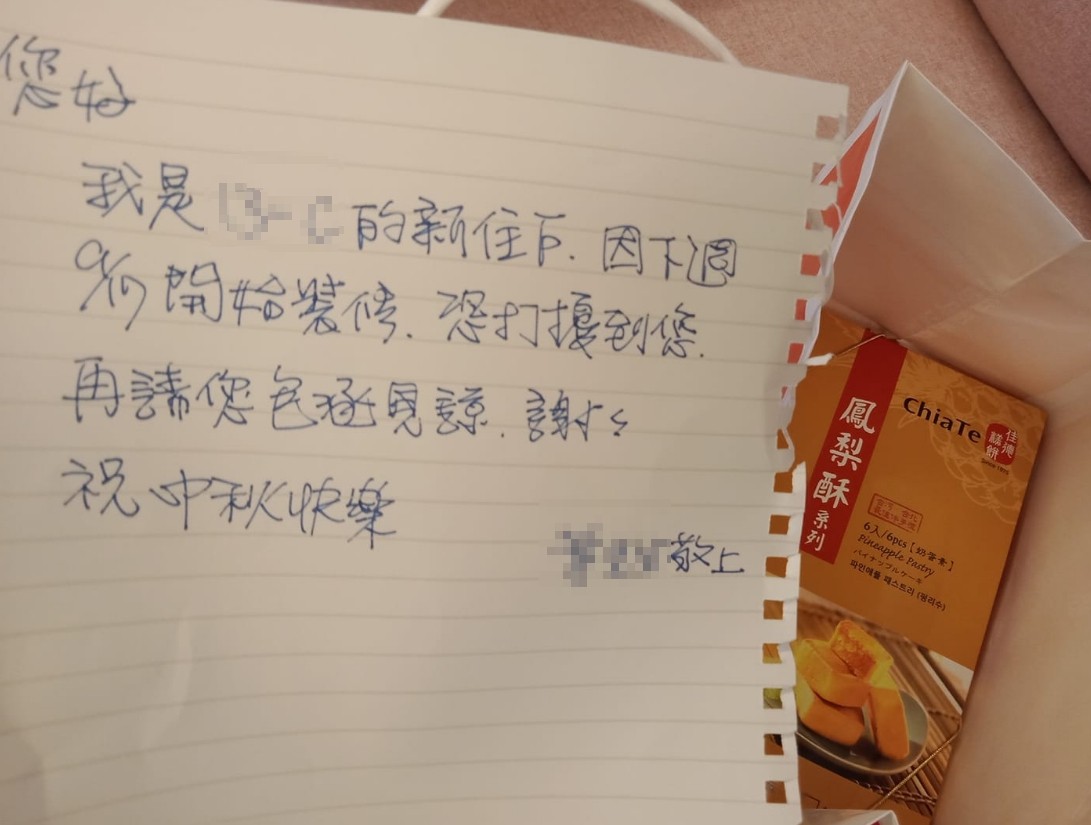 您好
我是 的新住戶. 因下週
開始裝修. 恐打擾到您.
再請您包涵見諒. 謝々
祝 中秋快樂
敬上
ChiaTe
佳德糕餅
Since 1975
鳳梨酥系列
6入/6pcs【奶蛋素】
Pineapple Pastry
パイナップルケーキ
파인애플 패스트리 (펑리수)